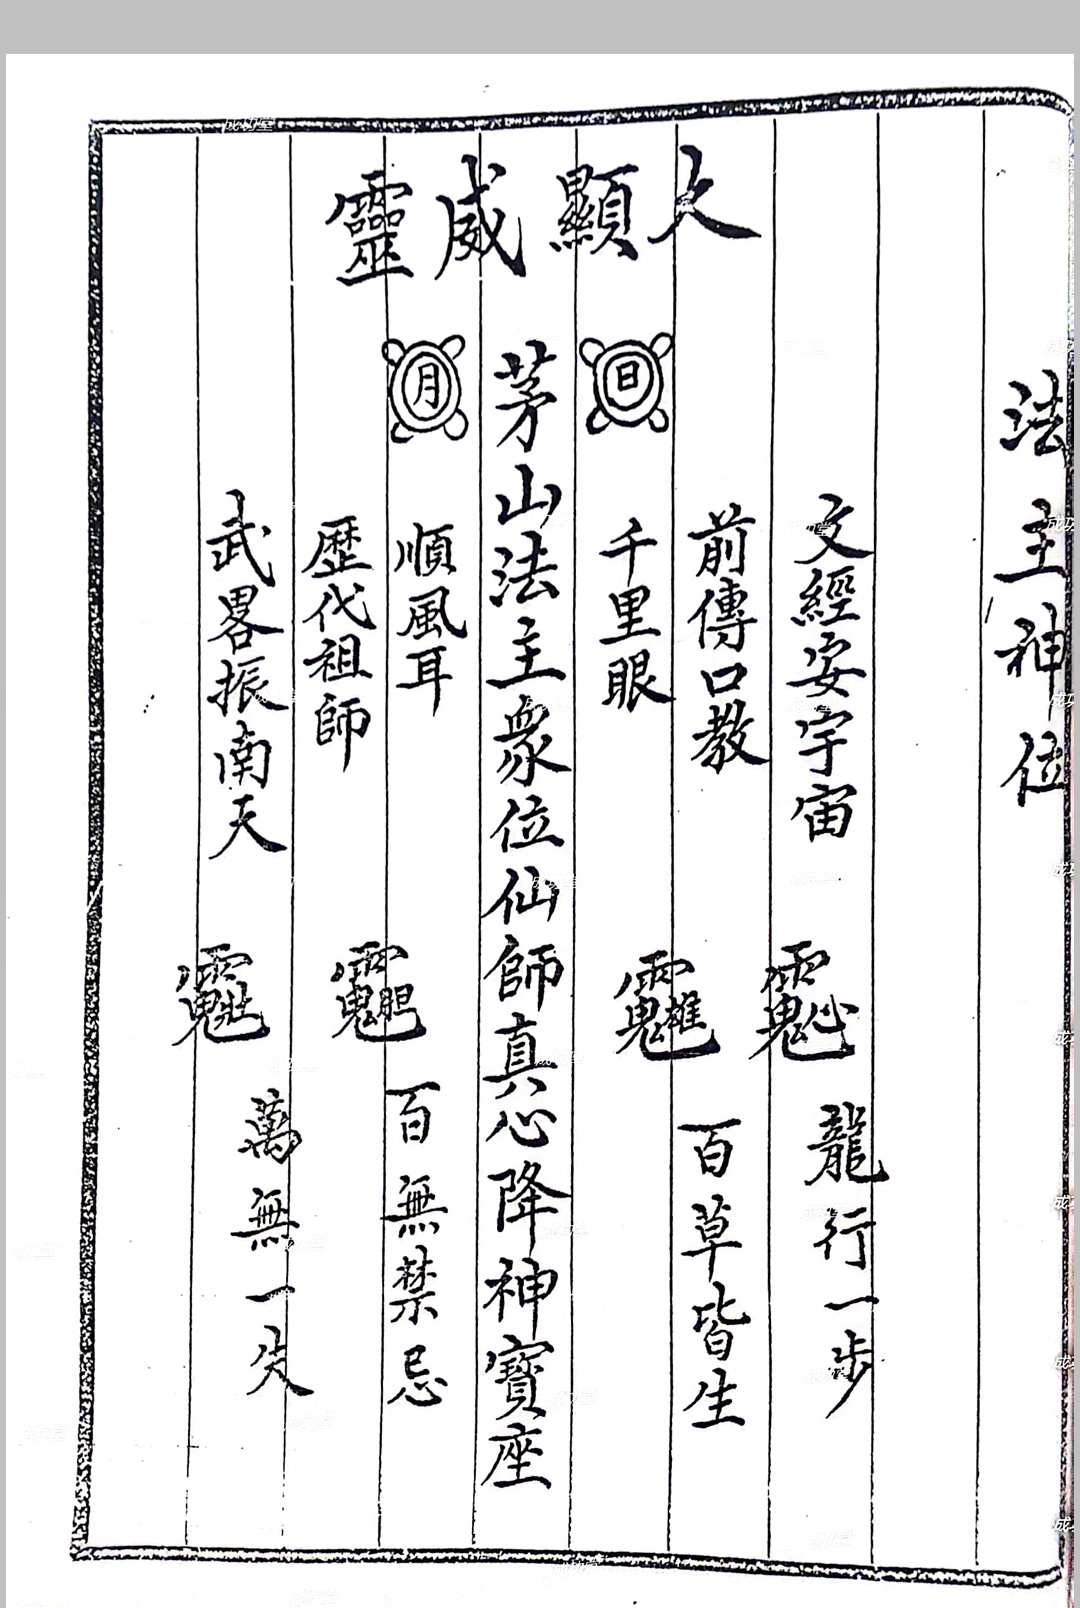 法主神位
大顯威靈
文經安宇宙
龍行一步
前傳口教
百草皆生
日
千里眼
茅山法主衆位仙師真心降神寶座
月
順風耳
百無禁忌
歷代祖師
武畧振南天
萬無一失